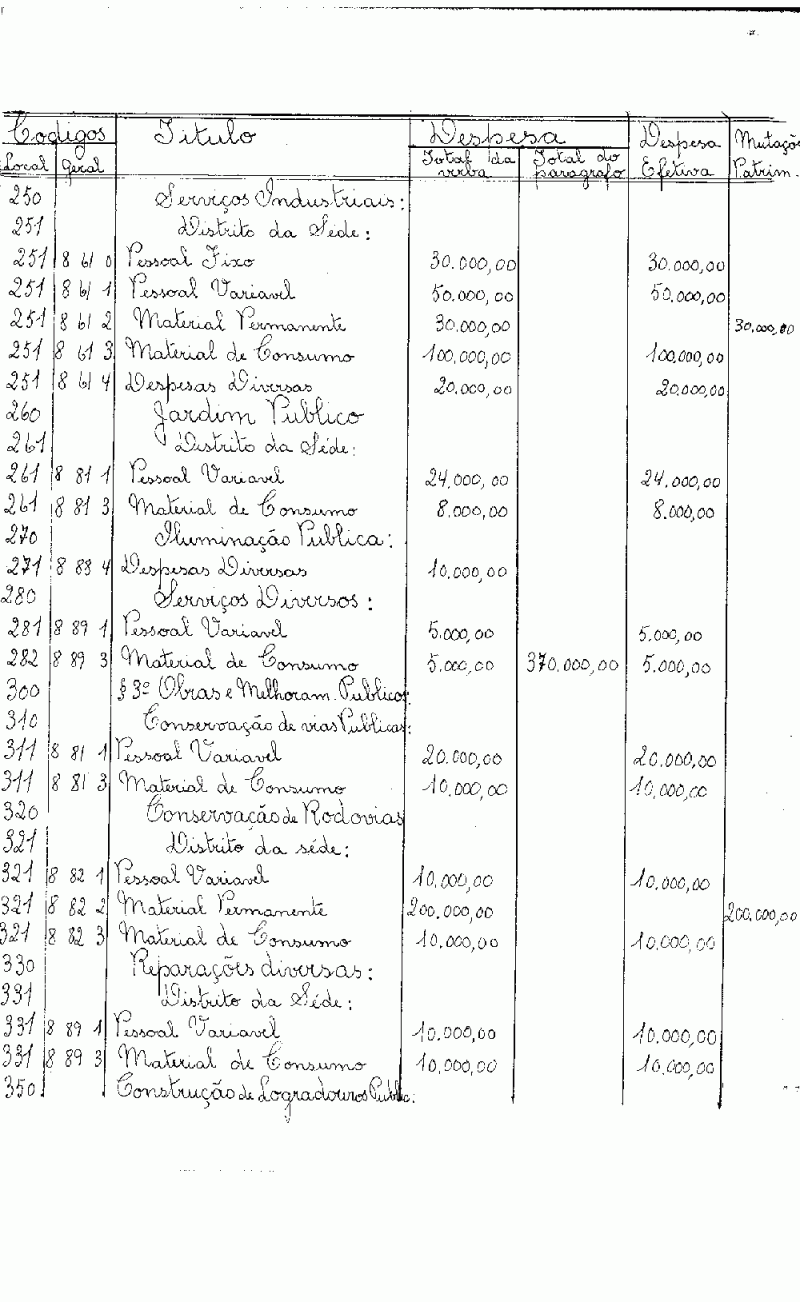 Codigos Titulo Despesa Despesa Efetiva Mutaçõ Patrim.
Local Geral Total da verba Total do paragrafo
250 Serviços Industriais:
251 Distrito da Séde:
251 8 61 0 Pessoal Fixo 30.000,00 30.000,00
251 8 61 1 Pessoal Variavel 50.000,00 50.000,00
251 8 61 2 Material Permanente 30.000,00 30.000,00
251 8 61 3 Material de Consumo 100.000,00 100.000,00
251 8 61 4 Despesas Diversas 20.000,00 20.000,00
260 Jardim Publico
261 Distrito da Séde:
261 8 81 1 Pessoal Variavel 24.000,00 24.000,00
261 8 81 3 Material de Consumo 8.000,00 8.000,00
270 Iluminação Publica:
271 8 88 4 Despesas Diversas 10.000,00
280 Serviços Diversos:
281 8 89 1 Pessoal Variavel 5.000,00 5.000,00
282 8 89 3 Material de Consumo 5.000,00 370.000,00 5.000,00
300 § 3º Obras e Melhoram. Publicos
310 Conservação de vias Publicas:
311 8 81 1 Pessoal Variavel 20.000,00 20.000,00
311 8 81 3 Material de Consumo 10.000,00 10.000,00
320 Conservação de Rodovias
321 Distrito da séde:
321 8 82 1 Pessoal Variavel 10.000,00 10.000,00
321 8 82 2 Material Permanente 200.000,00 200.000,00
321 8 82 3 Material de Consumo 10.000,00 10.000,00
330 Reparações diversas:
331 Distrito da Séde:
331 8 89 1 Pessoal Variavel 10.000,00 10.000,00
331 8 89 3 Material de Consumo 10.000,00 10.000,00
350 Construção de Logradouros Public: